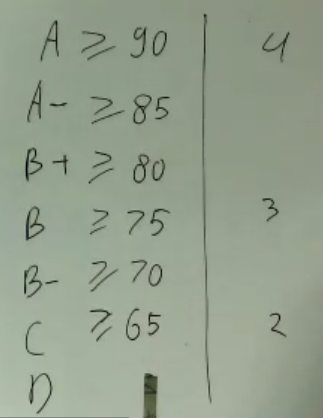 A ≥ 90 4
A- ≥ 85
B+ ≥ 80
B ≥ 75 3
B- ≥ 70
C ≥ 65 2
D